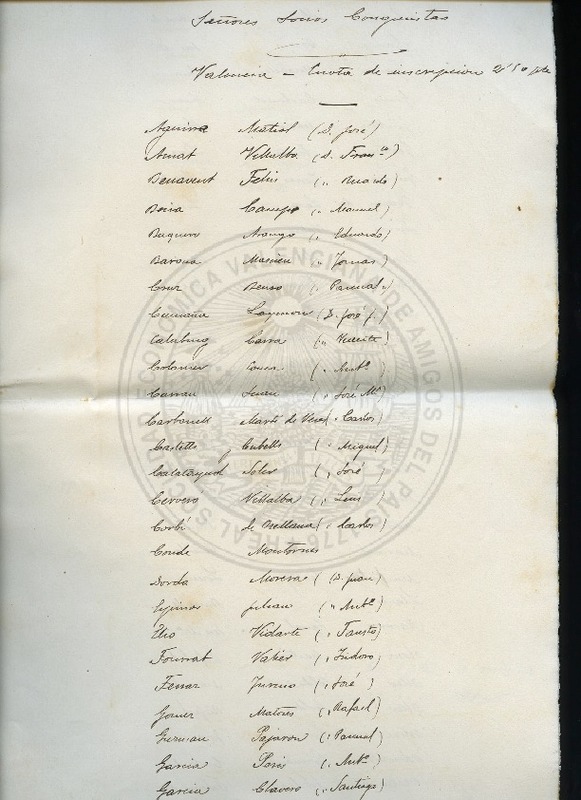 Señores Socios Congresistas
Valencia - Cuota de inscripcion 2'50 pts
Aguirre Matiol (D. José)
Amat Villalba (D. Franco)
Benavent Feliu (" Ricardo)
Boira Campo (" Manuel)
Baquero Arango (" Eduardo)
Barona (" Tomas)
Cruz (" Pascual)
(D. José J.)
Calabuig Carra (" Vicente)
Colomer (" Anto)
Carrau Juan (" José Ma)
Carbonell Martí de Veses (" Carlos)
Castells y Cubells (" Miguel)
Calatayud Soler (" José)
Cervero Villalba (" Luis)
Corbí de Orellana (" Carlos)
Conde Montornés
Dorda Morera (D. Juan)
Julian (" Anto)
Elio Vidarte (" Fausto)
Fourrat Vallier (" Isidoro)
Ferrar (" José)
Gomez (" Rafael)
German Pajaron (" Manuel)
Garcia Peris (" Anto)
Garcia Clavero (" Santiago)
REAL SOCIEDAD ECONOMICA VALENCIANA DE AMIGOS DEL PAIS 1776